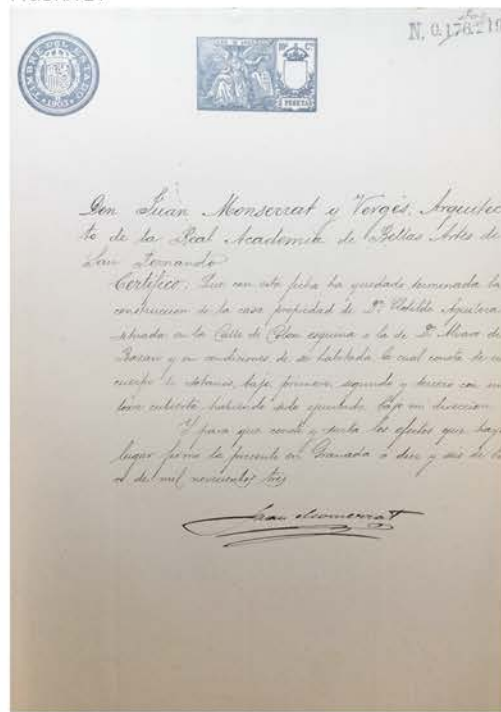 N. 0.176.219
TIMBRE DEL ESTADO
1903
1 PESETA
Don Juan Monserrat y Vergés, Arquitec
to de la Real Academia de Bellas Artes de
San Fernando
Certifico: Que con esta fecha ha quedado terminada la
construccion de la casa propiedad de Dª Clotilde Aguilera
situada en la Calle de Colon esquina a la de D. Alvaro de
Bazan y en condiciones de ser habitada, la cual consta de un
cuerpo de sotanos, bajo, primero, segundo y tercero con su
torre cubierta, habiendo sido ejecutada bajo mi direccion
Y para que conste y surta los efectos que haya
lugar firmo la presente en Granada á diez y seis de
de mil novecientos tres
Juan Monserrat